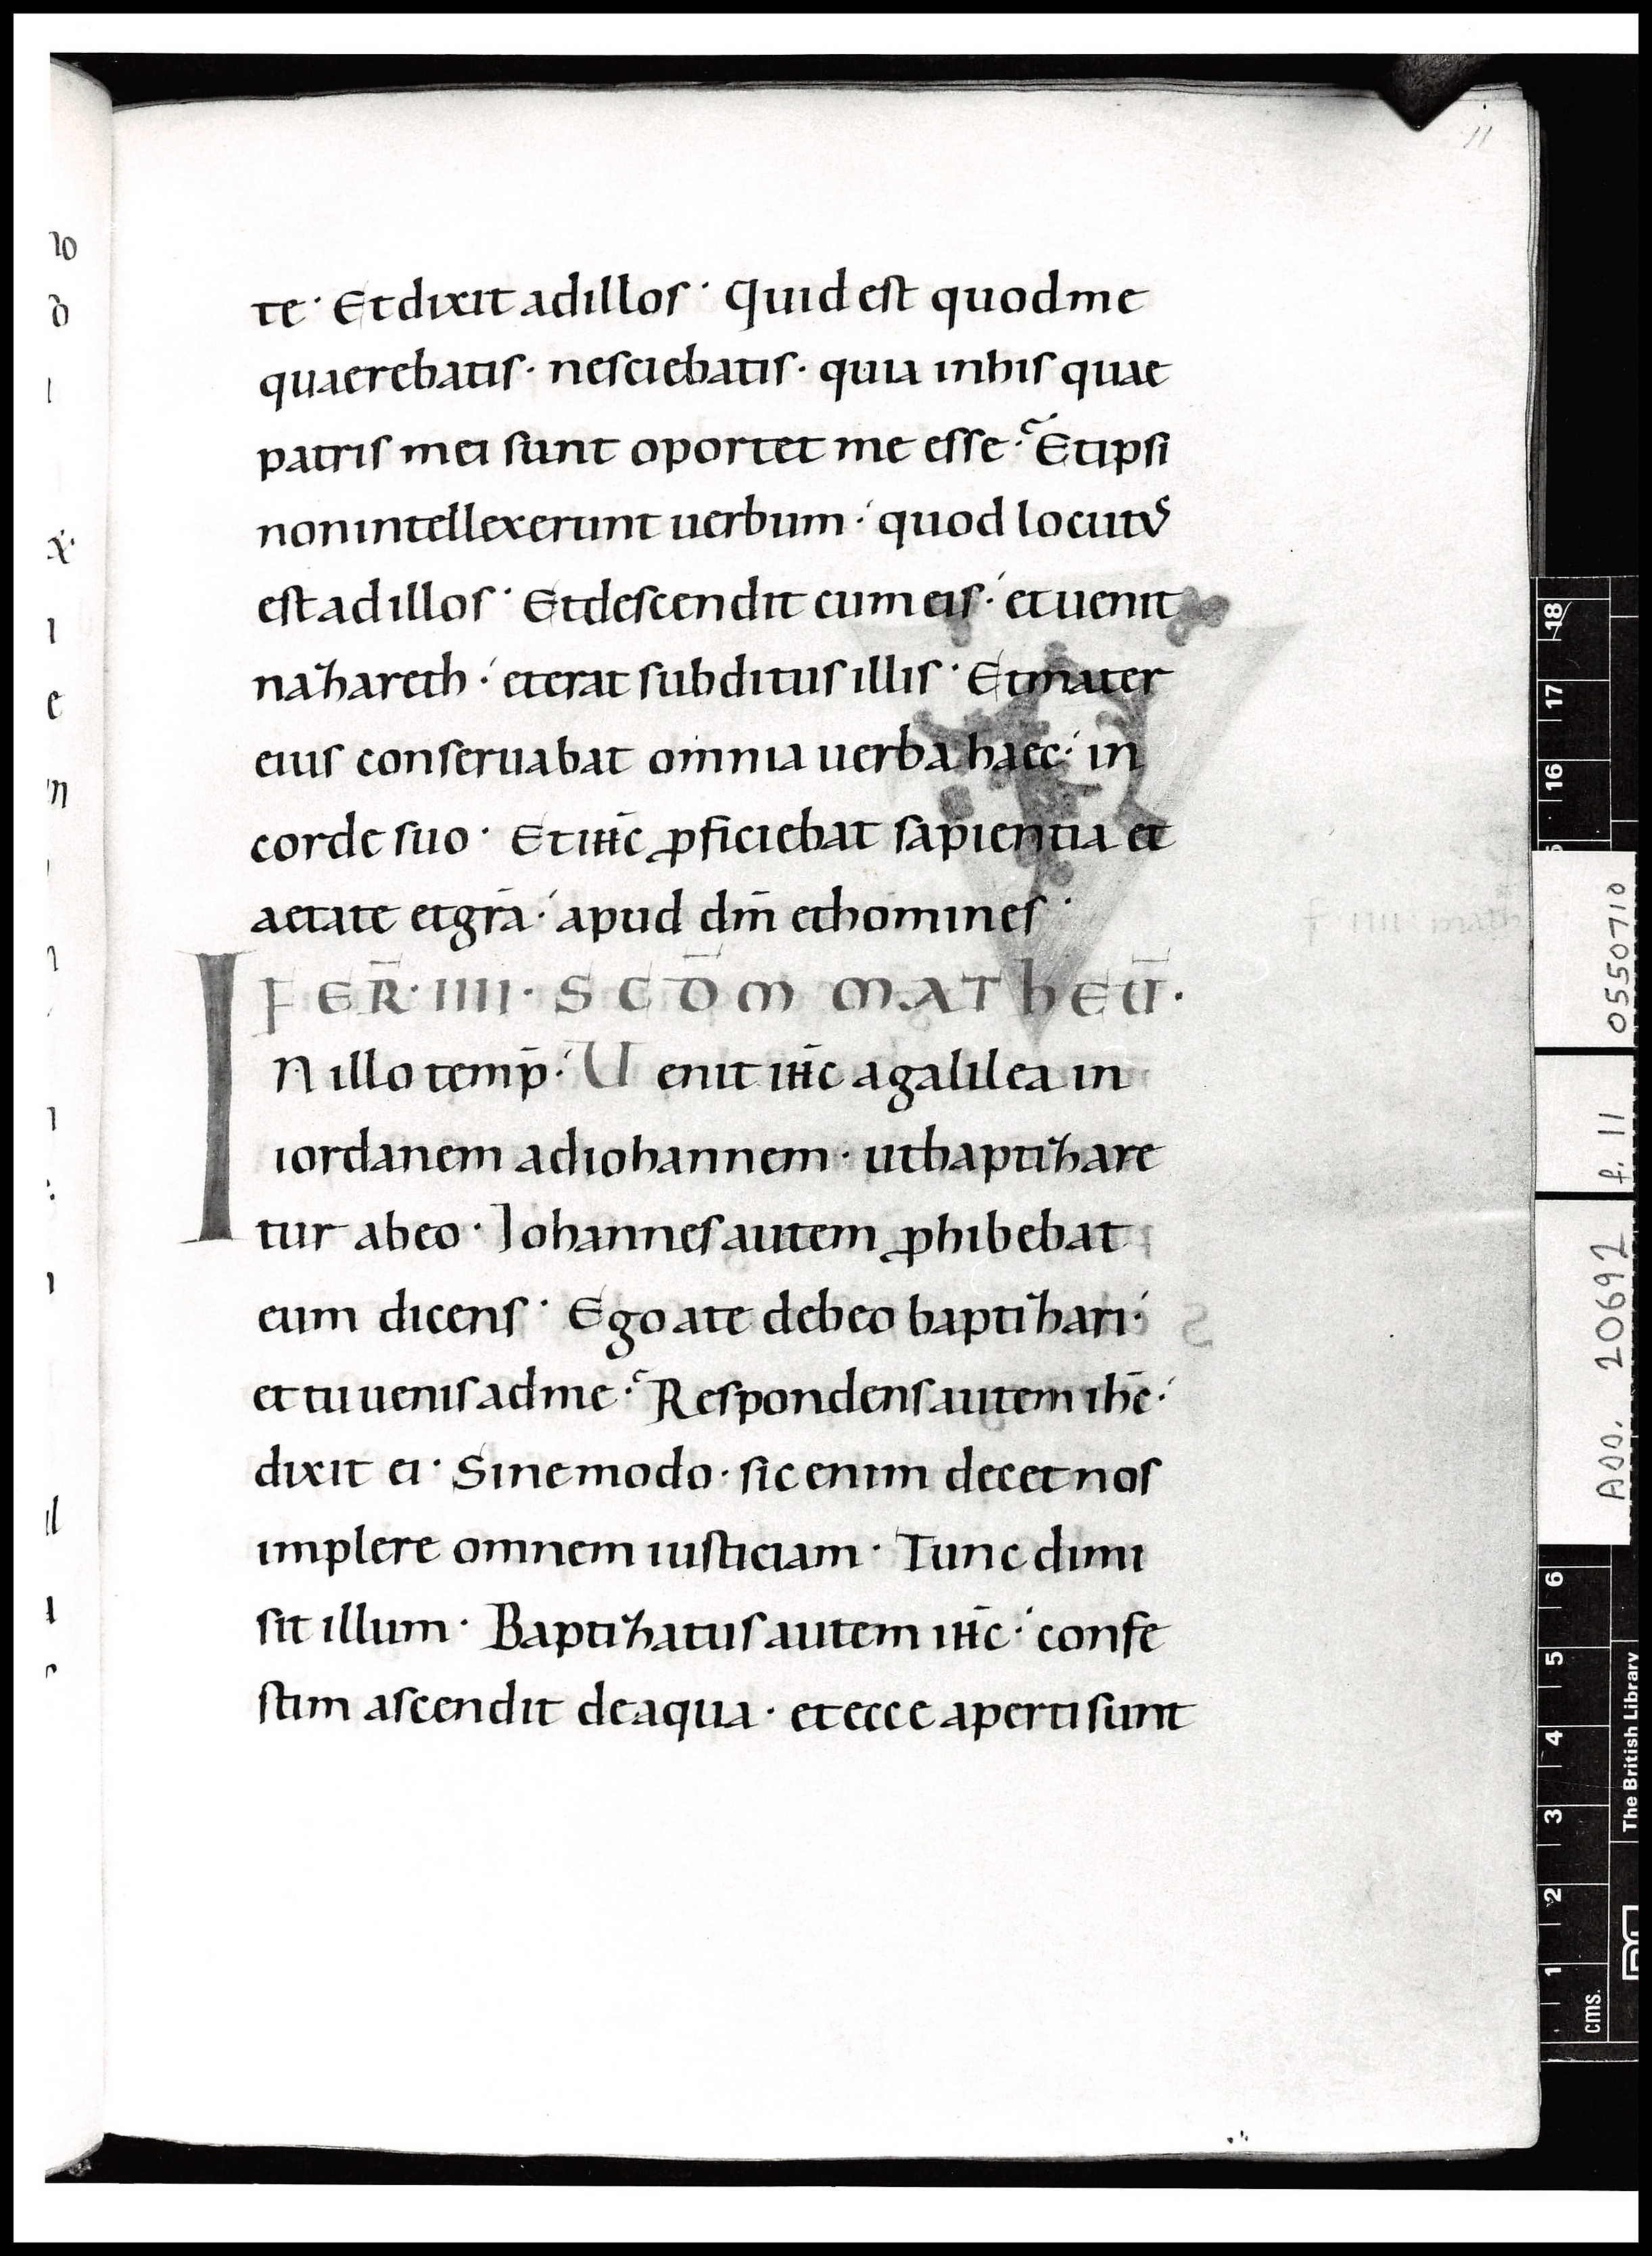 11
te · Et dixit ad illos · Quid est quod me
quaerebatis · nesciebatis · quia in his quae
patris mei sunt oportet me esse · Et ipsi
non intellexerunt uerbum · quod locutus
est ad illos · Et descendit cum eis · et uenit
nazareth · et erat subditus illis · Et mater
eius conseruabat omnia uerba haec · in
corde suo · Et ihc̄ ꝓficiebat sapientia et
aetate et grā · apud dm̄ et homines ·
FER̄ · IIII · SCD̄M MATHEŪ ·
IN illo temp̄ · Uenit ihc̄ a galilea in
iordanem ad iohannem · ut baptizare
tur ab eo · Iohannes autem ꝓhibebat
eum dicens · Ego a te debeo baptizari ·
et tu uenis ad me · Respondens autem ihc̄ ·
dixit ei · Sine modo · sic enim decet nos
implere omnem iusticiam · Tunc dimi
sit illum · Baptizatus autem ihc̄ · confe
stim ascendit de aqua · et ecce aperti sunt
0550710
f. 11
ADD. 20692
18
17
16
6
5
4
3
2
1
cms.
The British Library